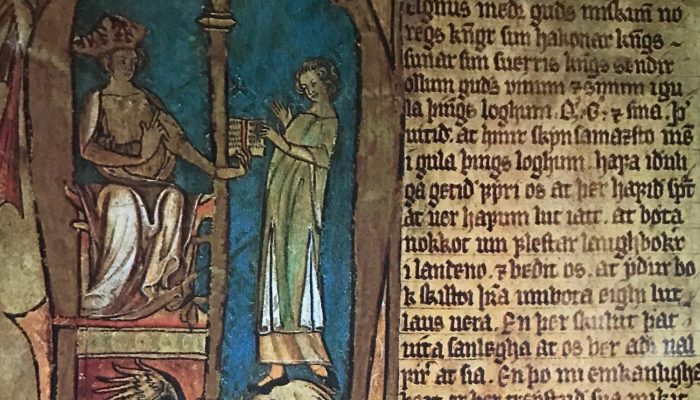 agnus með guds miskun no
regs kngr sun hakonar kngs
sunar sun suerris kngs sendir
ollum guds uinum ⁊ sinum i gu
la þings loghum. Q. G. ⁊ sina. þ
uitid. at hinir skynsamazsto me
i gula þings loghum. hafa iduli
ga getid firi os at þer hafid spt
at uer hafum lut iatt. at bøta
nokkot um flestar laughbøkr
i landeno. ⁊ bedit os. at ydur bo
k skilldi umbota eighi lut
laus uera. En þer skulut þat
uita sanlegha at os ber at
at sia. En þo mi emkanligh